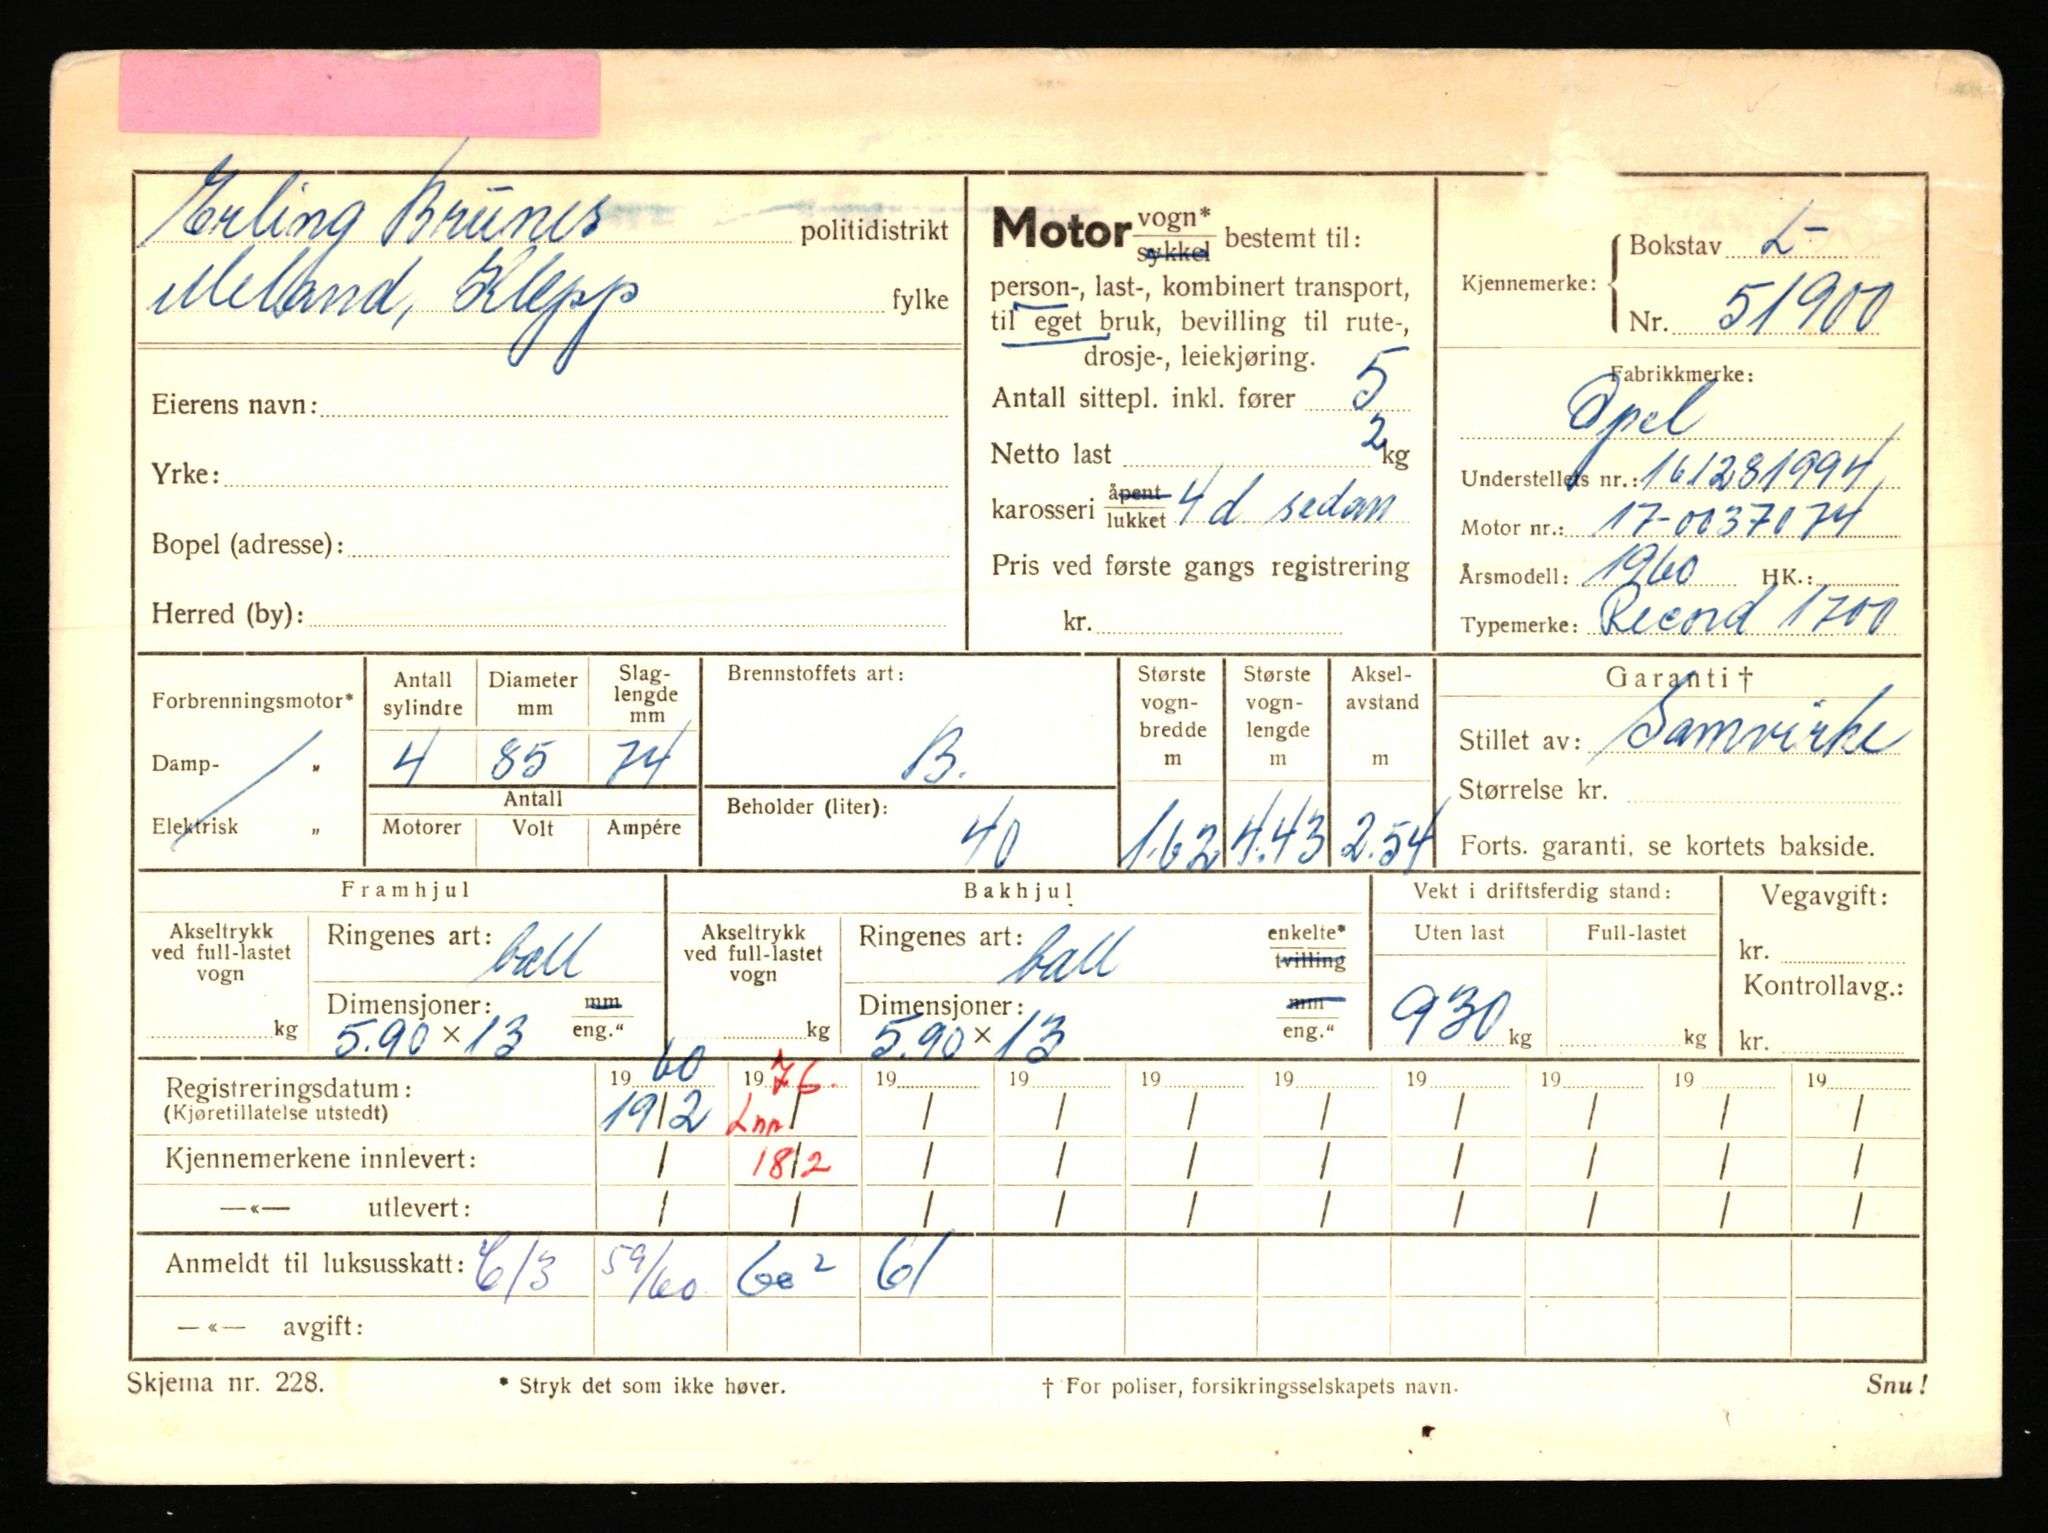 Erling Brünes politidistrikt
Meland, Klepp fylke
Eierens navn:
Yrke:
Bopel (adresse):
Herred (by):
Motor vogn* sykkel bestemt til:
person-, last-, kombinert transport,
til eget bruk, bevilling til rute-,
drosje-, leiekjøring.
Antall sittepl. inkl. fører 5
Netto last 2 kg
karosseri åpent lukket 4 d sedan
Pris ved første gangs registrering
kr.
Kjennemerke: Bokstav L-
Nr. 51900
Fabrikkmerke:
Opel
Understellets nr.: 161281994
Motor nr.: 17-0037074
Årsmodell: 1960 HK.:
Typemerke: Record 1700
Forbrenningsmotor*
Damp- „
Elektrisk „
Antall sylindre Diameter mm Slag-lengde mm
4 85 74
Antall
Motorer Volt Ampére
Brennstoffets art:
B.
Beholder (liter):
40
Største vogn-bredde m Største vogn-lengde m Aksel-avstand m
1.62 4.43 2.54
Garanti †
Stillet av: Samvirke
Størrelse kr.
Forts. garanti, se kortets bakside.
Framhjul
Akseltrykk ved full-lastet vogn
kg
Ringenes art: ball
Dimensjoner: mm eng."
5.90 × 13
Bakhjul
Akseltrykk ved full-lastet vogn
kg
Ringenes art: ball enkelte* tvilling
Dimensjoner: mm eng."
5.90 × 13
Vekt i driftsferdig stand:
Uten last Full-lastet
930 kg kg
Vegavgift:
kr.
Kontrollavg.:
kr.
Registreringsdatum: 1960 1976. 19 19 19 19 19 19 19 19
(Kjøretillatelse utstedt) 19/2 / / / / / / / / /
Kjennemerkene innlevert: / 18/2 / / / / / / / /
—«— utlevert: / / / / / / / / / /
Anmeldt til luksusskatt: 6/3 59/60 60² 61
—«— avgift:
Skjema nr. 228. * Stryk det som ikke høver. † For poliser, forsikringsselskapets navn. Snu!